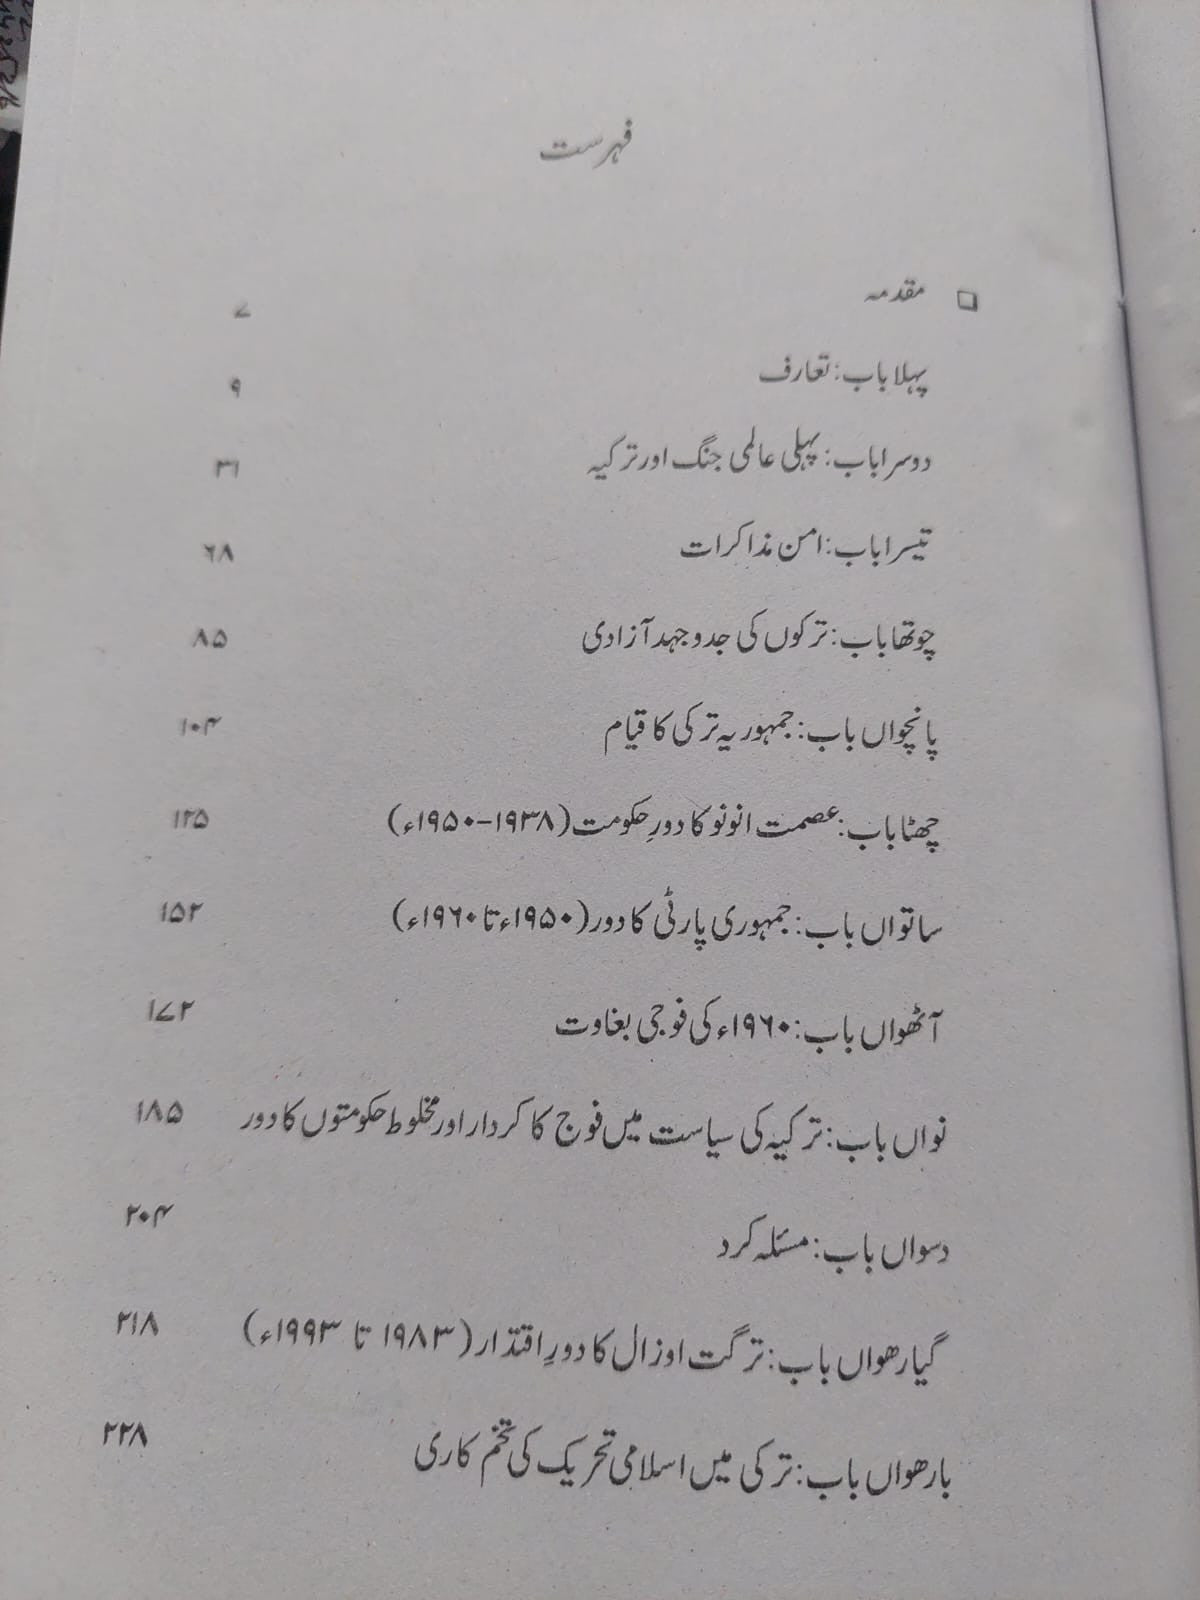 فہرست
□ مقدمہ ۷
پہلا باب: تعارف ۹
دوسرا باب: پہلی عالمی جنگ اور ترکیہ ۳۱
تیسرا باب: امن مذاکرات ۶۸
چوتھا باب: ترکوں کی جدوجہد آزادی ۸۵
پانچواں باب: جمہوریہ ترکی کا قیام ۱۰۴
چھٹا باب: عصمت انونو کا دورِ حکومت (۱۹۳۸-۱۹۵۰ء) ۱۲۵
ساتواں باب: جمہوری پارٹی کا دور (۱۹۵۰ء تا ۱۹۶۰ء) ۱۵۲
آٹھواں باب: ۱۹۶۰ء کی فوجی بغاوت ۱۷۲
نواں باب: ترکیہ کی سیاست میں فوج کا کردار اور مخلوط حکومتوں کا دور ۱۸۵
دسواں باب: مسئلہ کرد ۲۰۴
گیارھواں باب: ترگت اوزال کا دورِ اقتدار (۱۹۸۳ تا ۱۹۹۳ء) ۲۱۸
بارھواں باب: ترکی میں اسلامی تحریک کی تخم کاری ۲۲۸